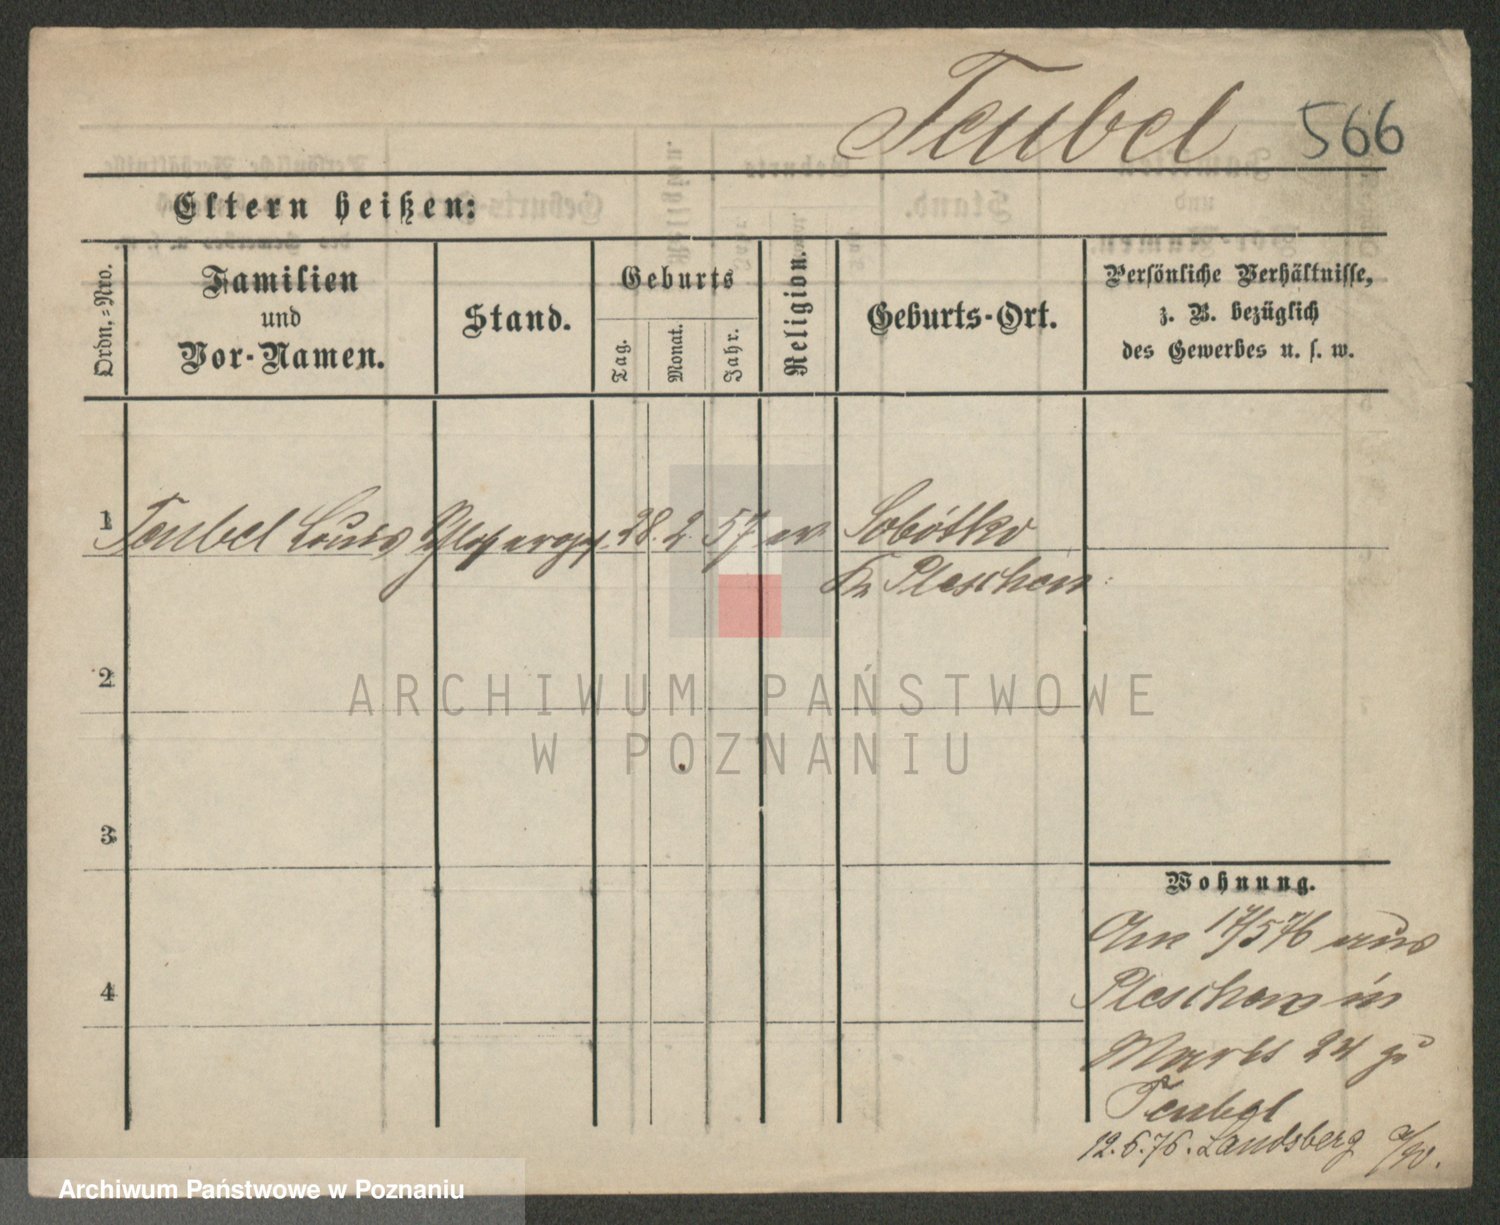 Teubel 566
Eltern heißen:
Ordn.-Nro.
Familien
und
Vor-Namen.
Stand.
Geburts
Tag.
Monat.
Jahr.
Religion.
Geburts-Ort.
Persönliche Verhältnisse,
z. B. bezüglich
des Gewerbes u. s. w.
1 Teubel Louis 28. 2 57 ev Sobótka
Kr Pleschen
2
ARCHIWUM PAŃSTWOWE
W POZNANIU
3
Wohnung.
Am 17/5 76 aus
4 Pleschen in
Markt 24 zu
Teubel
12.6.76. Landsberg a/W.
Archiwum Państwowe w Poznaniu